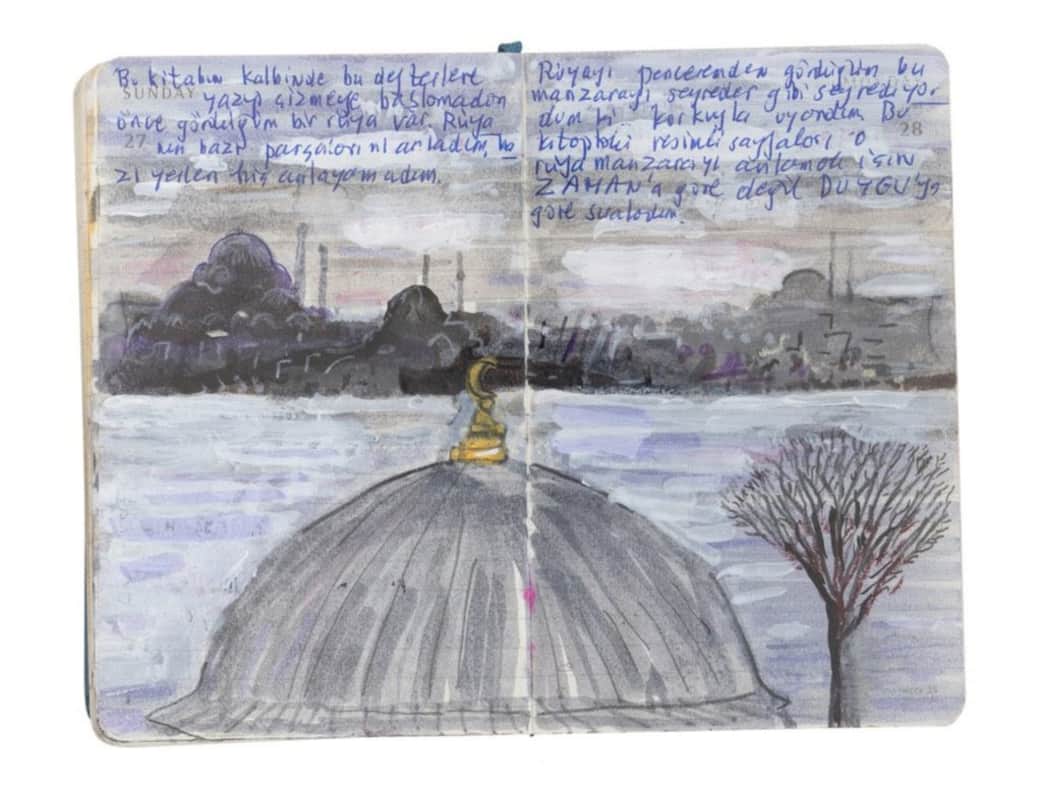 Bu kitabın kalbinde bu defterlere
SUNDAY
yazıp çizmeye başlamadan
önce gördüğüm bir rüya var. Rüya
27
nın bazı parçalarını anladım, ba
zı yerleri hiç anlayamadım.
Rüyayı penceremden gördüğüm bu
manzarayı seyreder gibi seyrediyor-
dum ki korkuyla uyandım. Bu
28
kitaptaki resimli sayfaları o
rüya manzarayı anlamak için
ZAMAN'a göre değil DUYGU'ya
göre sıraladım.